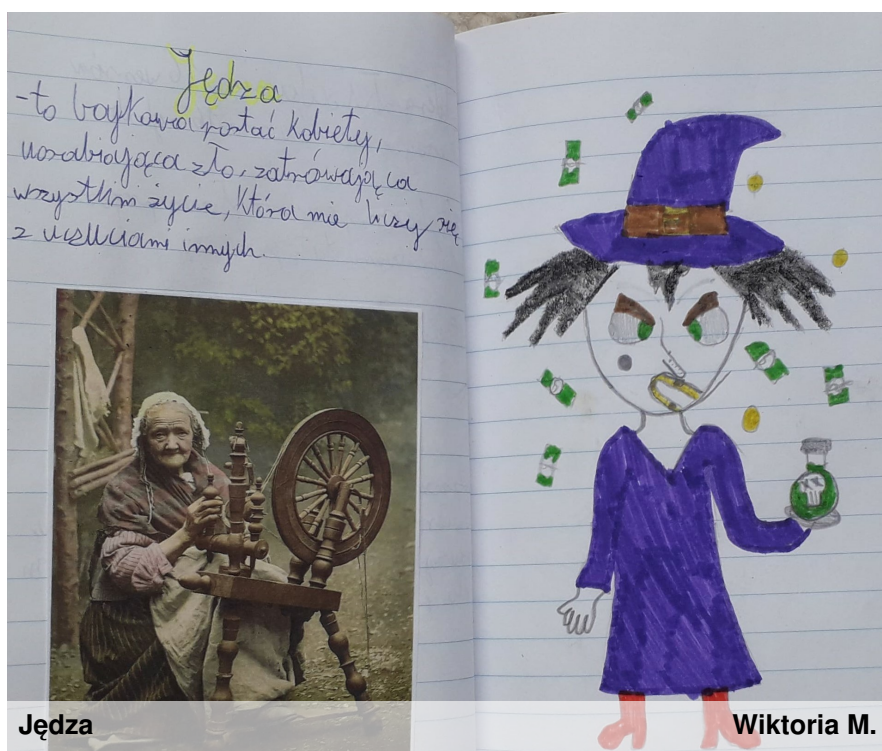 Jędza
-to bajkowa postać kobiety,
uosabiająca zło, zatruwająca
wszystkim życie, która nie liczy się
z uczuciami innych.
Jędza
Wiktoria M.